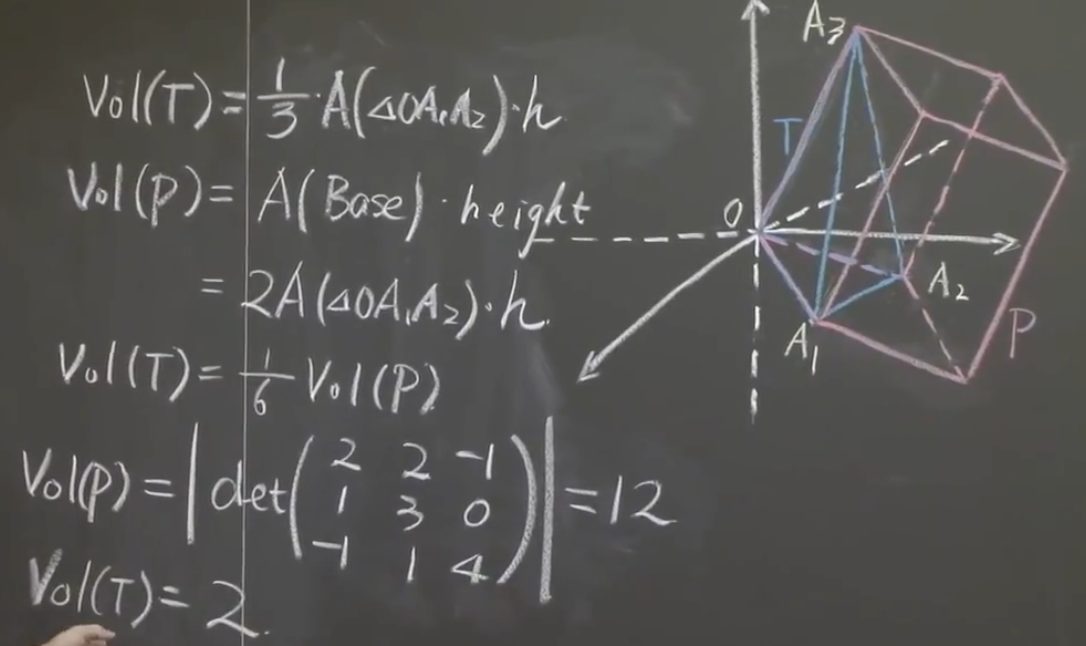 Vol(T) = 1/3 · A(△OA₁A₂) · h
Vol(P) = A(Base) · height
= 2A(△OA₁A₂) · h.
Vol(T) = 1/6 Vol(P)
Vol(P) = | det( 2 2 -1
1 3 0
-1 1 4 ) | = 12
Vol(T) = 2.
A₃
T
O
A₂
A₁
P